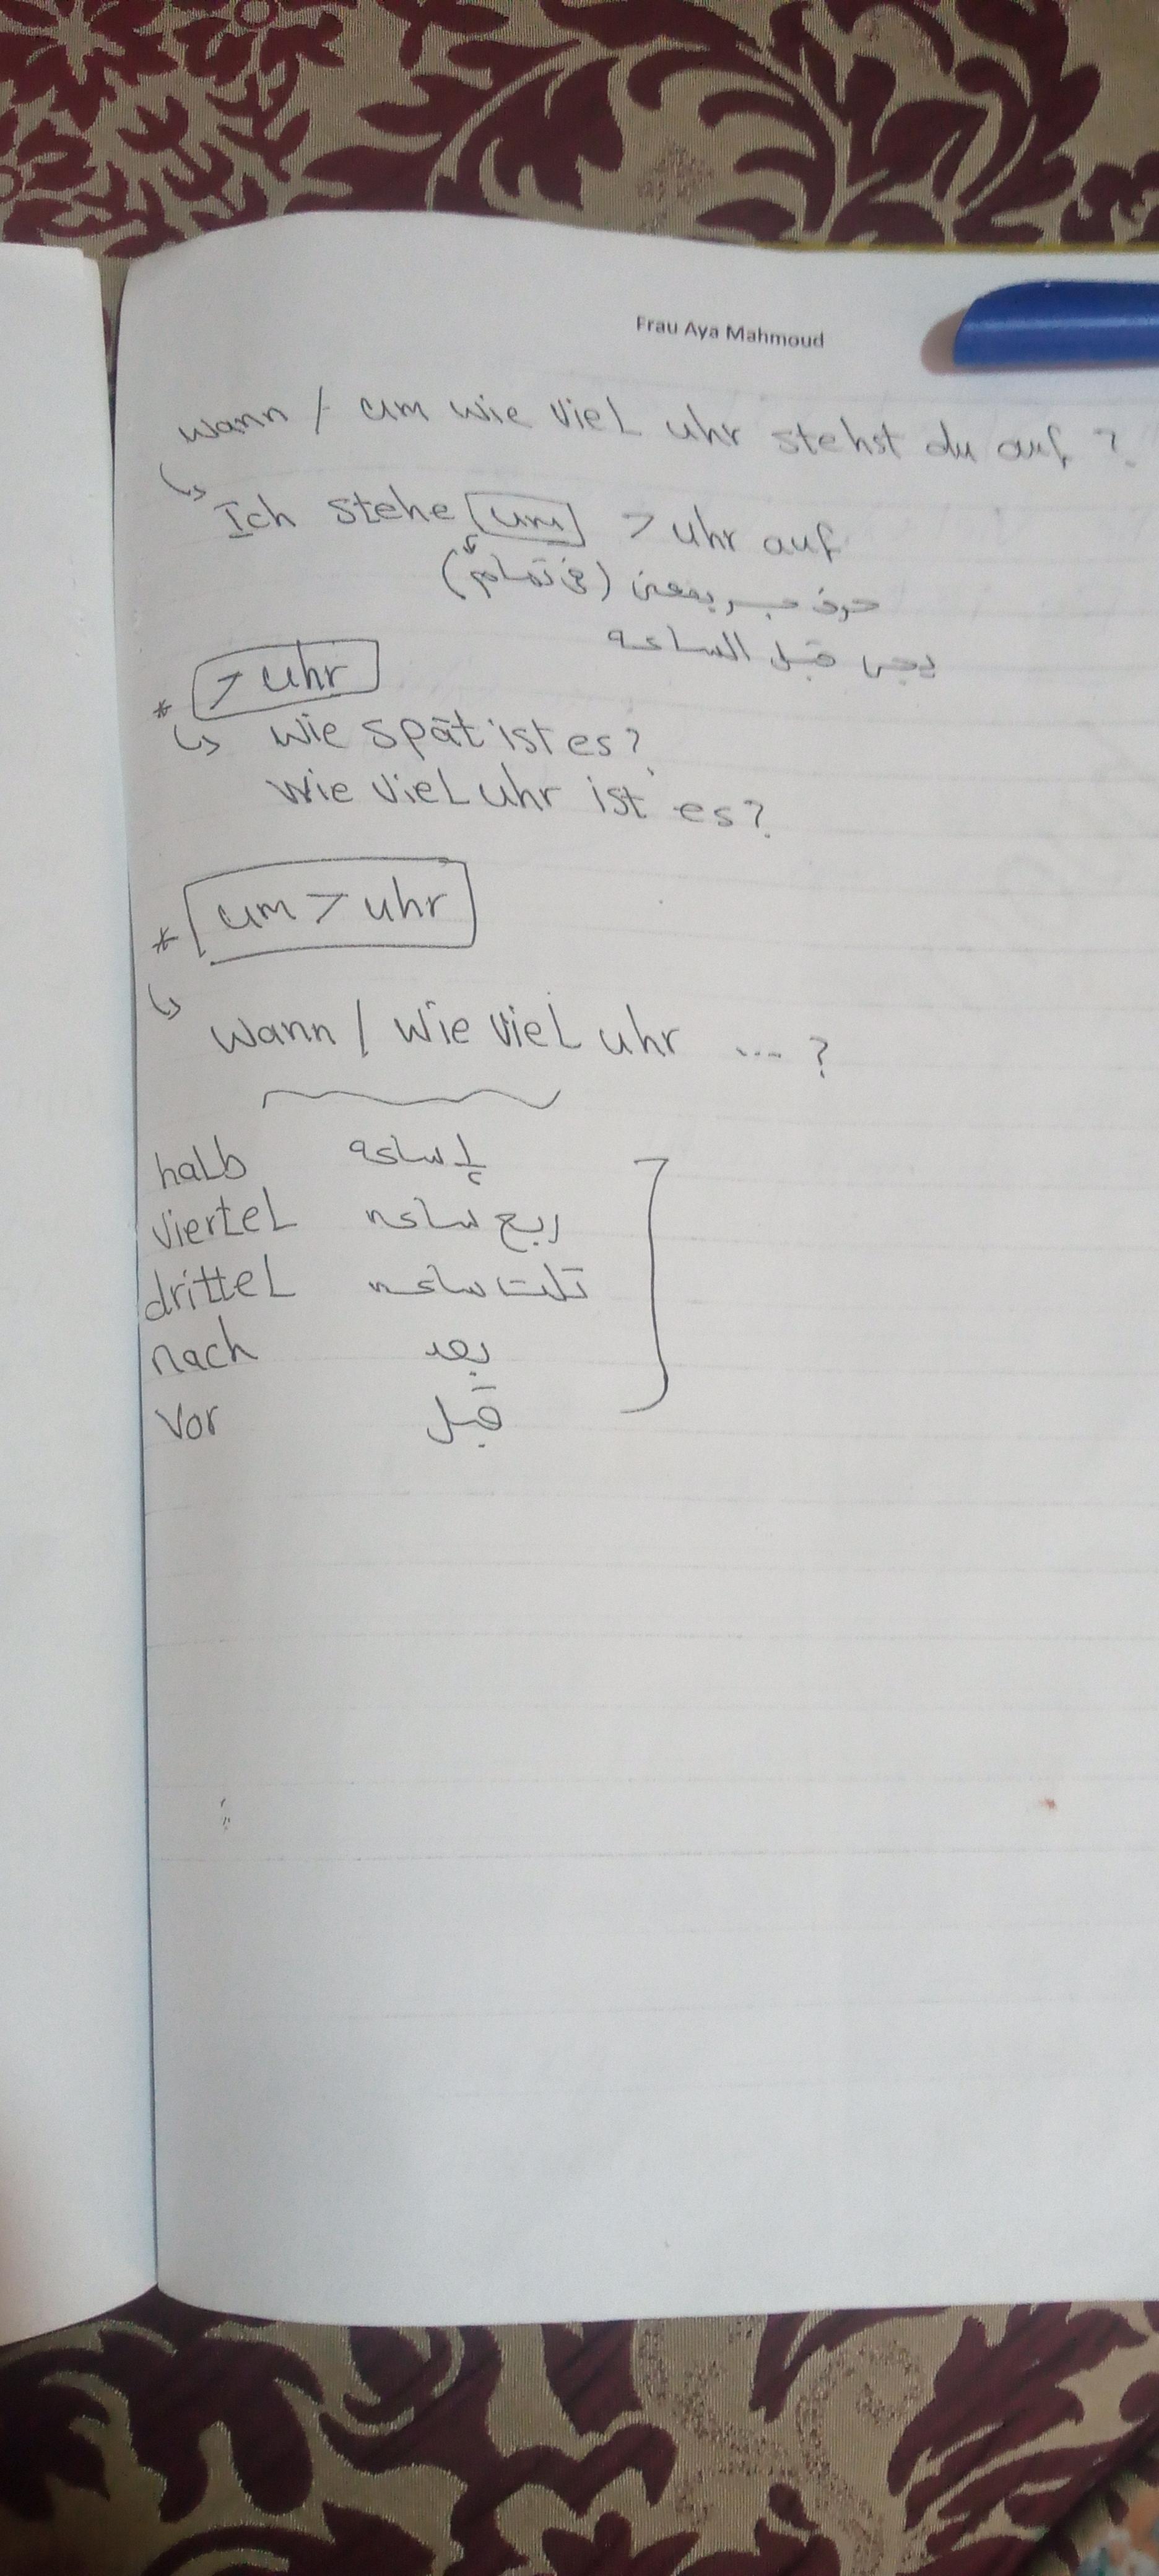 Frau Aya Mahmoud
wann / um wie viel uhr stehst du auf ?
Ich stehe um 7 uhr auf
حرف جر بمعنى (في تمام)
يجى قبل الساعه
* 7 uhr
wie spät ist es?
wie viel uhr ist es?
* um 7 uhr
wann / wie viel uhr ... ?
halb ½ ساعه
viertel ربع ساعه
drittel تلت ساعه
nach بعد
vor قبل